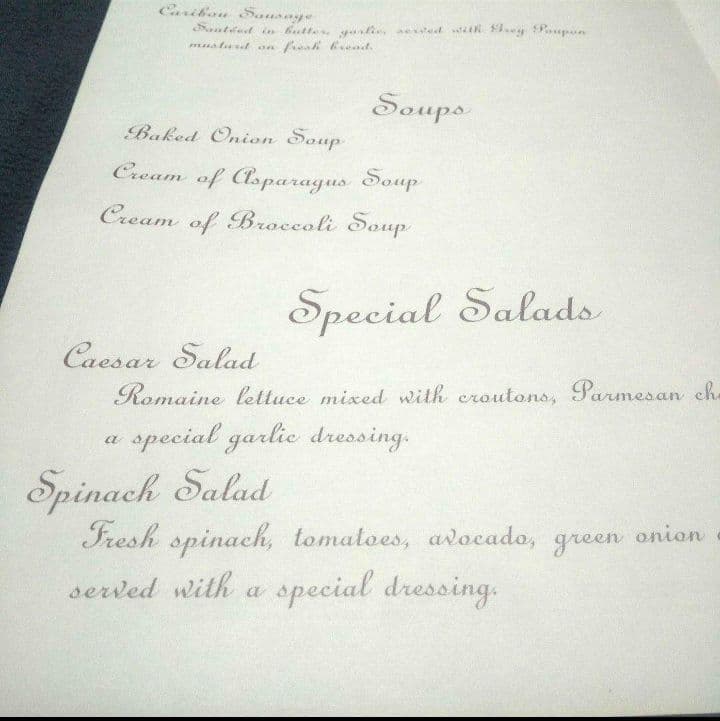 Caribou Sausage
Sautéed in butter, garlic, served with Grey Poupon
mustard on fresh bread.
Soups
Baked Onion Soup
Cream of Asparagus Soup
Cream of Broccoli Soup
Special Salads
Caesar Salad
Romaine lettuce mixed with croutons, Parmesan
a special garlic dressing.
Spinach Salad
Fresh spinach, tomatoes, avocado, green onion
served with a special dressing.